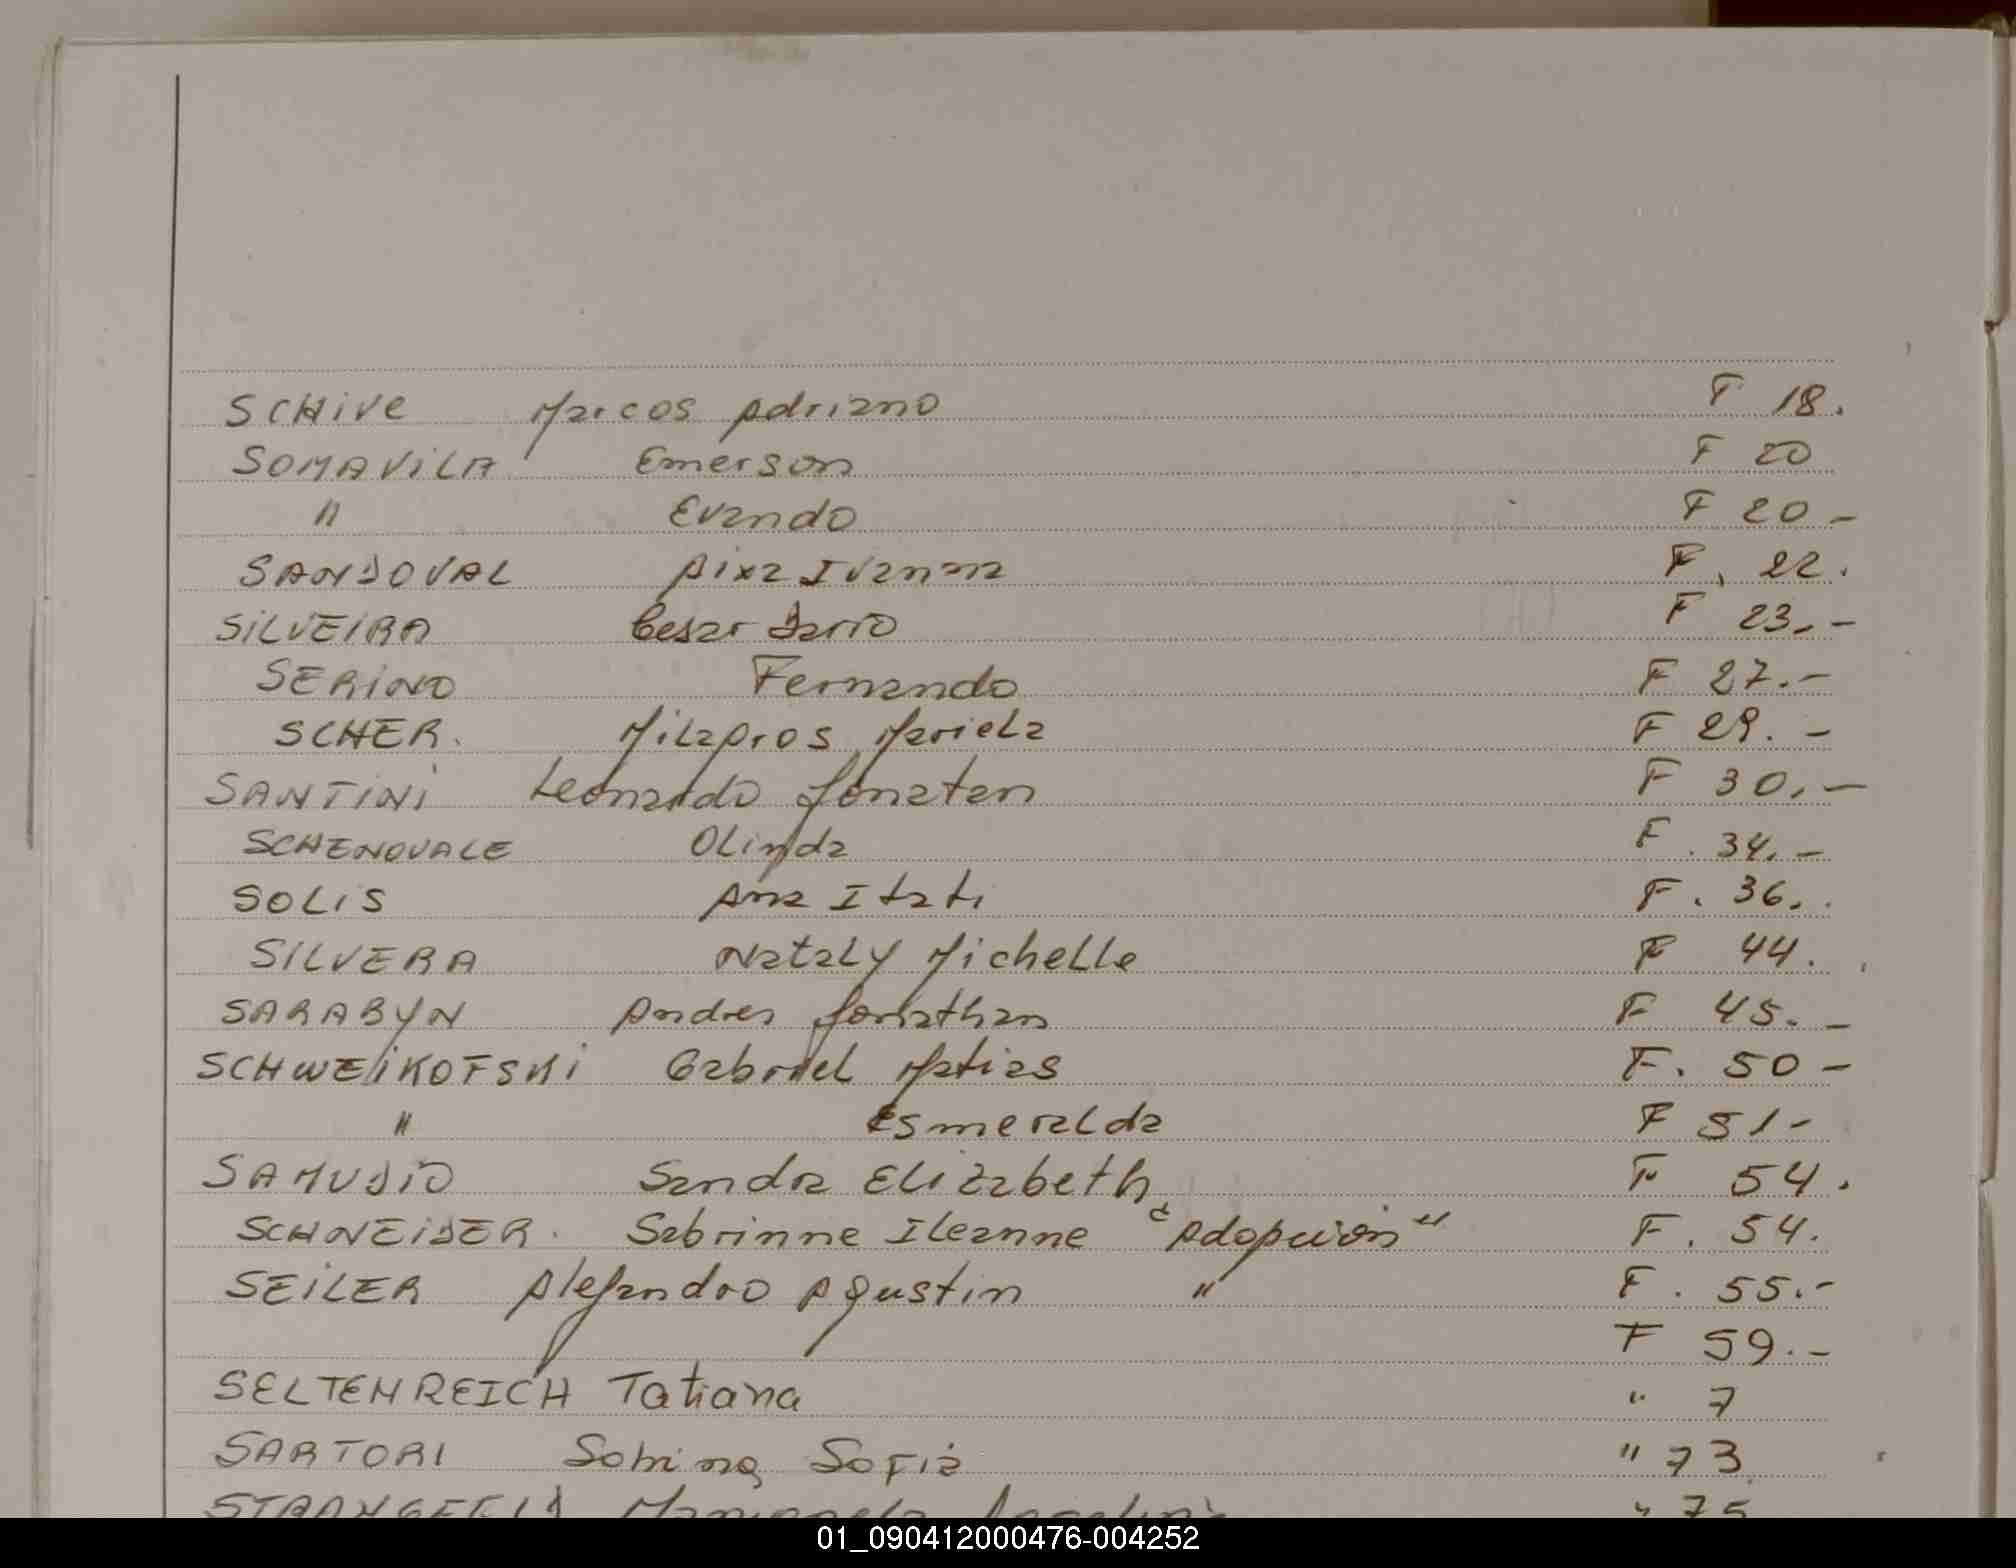 SCHIVE Marcos Adriano F 18.
SOMAVILA Emerson F 20
" Evando F 20 -
SANDOVAL Aixa Ivanna F. 22.
SILVEIRA Cesar Dario F 23.-
SERINO Fernando F 27.-
SCHER. Milagros Mariela F 29. -
SANTINI Leonardo Jonatan F 30.-
SCHENOVALE Olinda F. 34.-
SOLIS Ana Itati F. 36.
SILVERA Nataly Michelle F 44.
SARABYN Andres Jonathan F 45. -
SCHWEIKOFSKI Gabriel Matias F. 50 -
" Esmeralda F 51-
SAMUDIO Sandra Elizabeth F 54.
SCHNEIDER. Sabrinne Ileanne "Adopcion" F. 54.
SEILER Alejandro Agustin " F. 55.-
F 59.-
SELTENREICH Tatiana " 7
SARTORI Sofia " 73
" 75
01_090412000476-004252